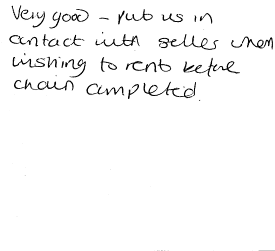 Very good - put us in
contact with seller when
wishing to rent before
chain completed.